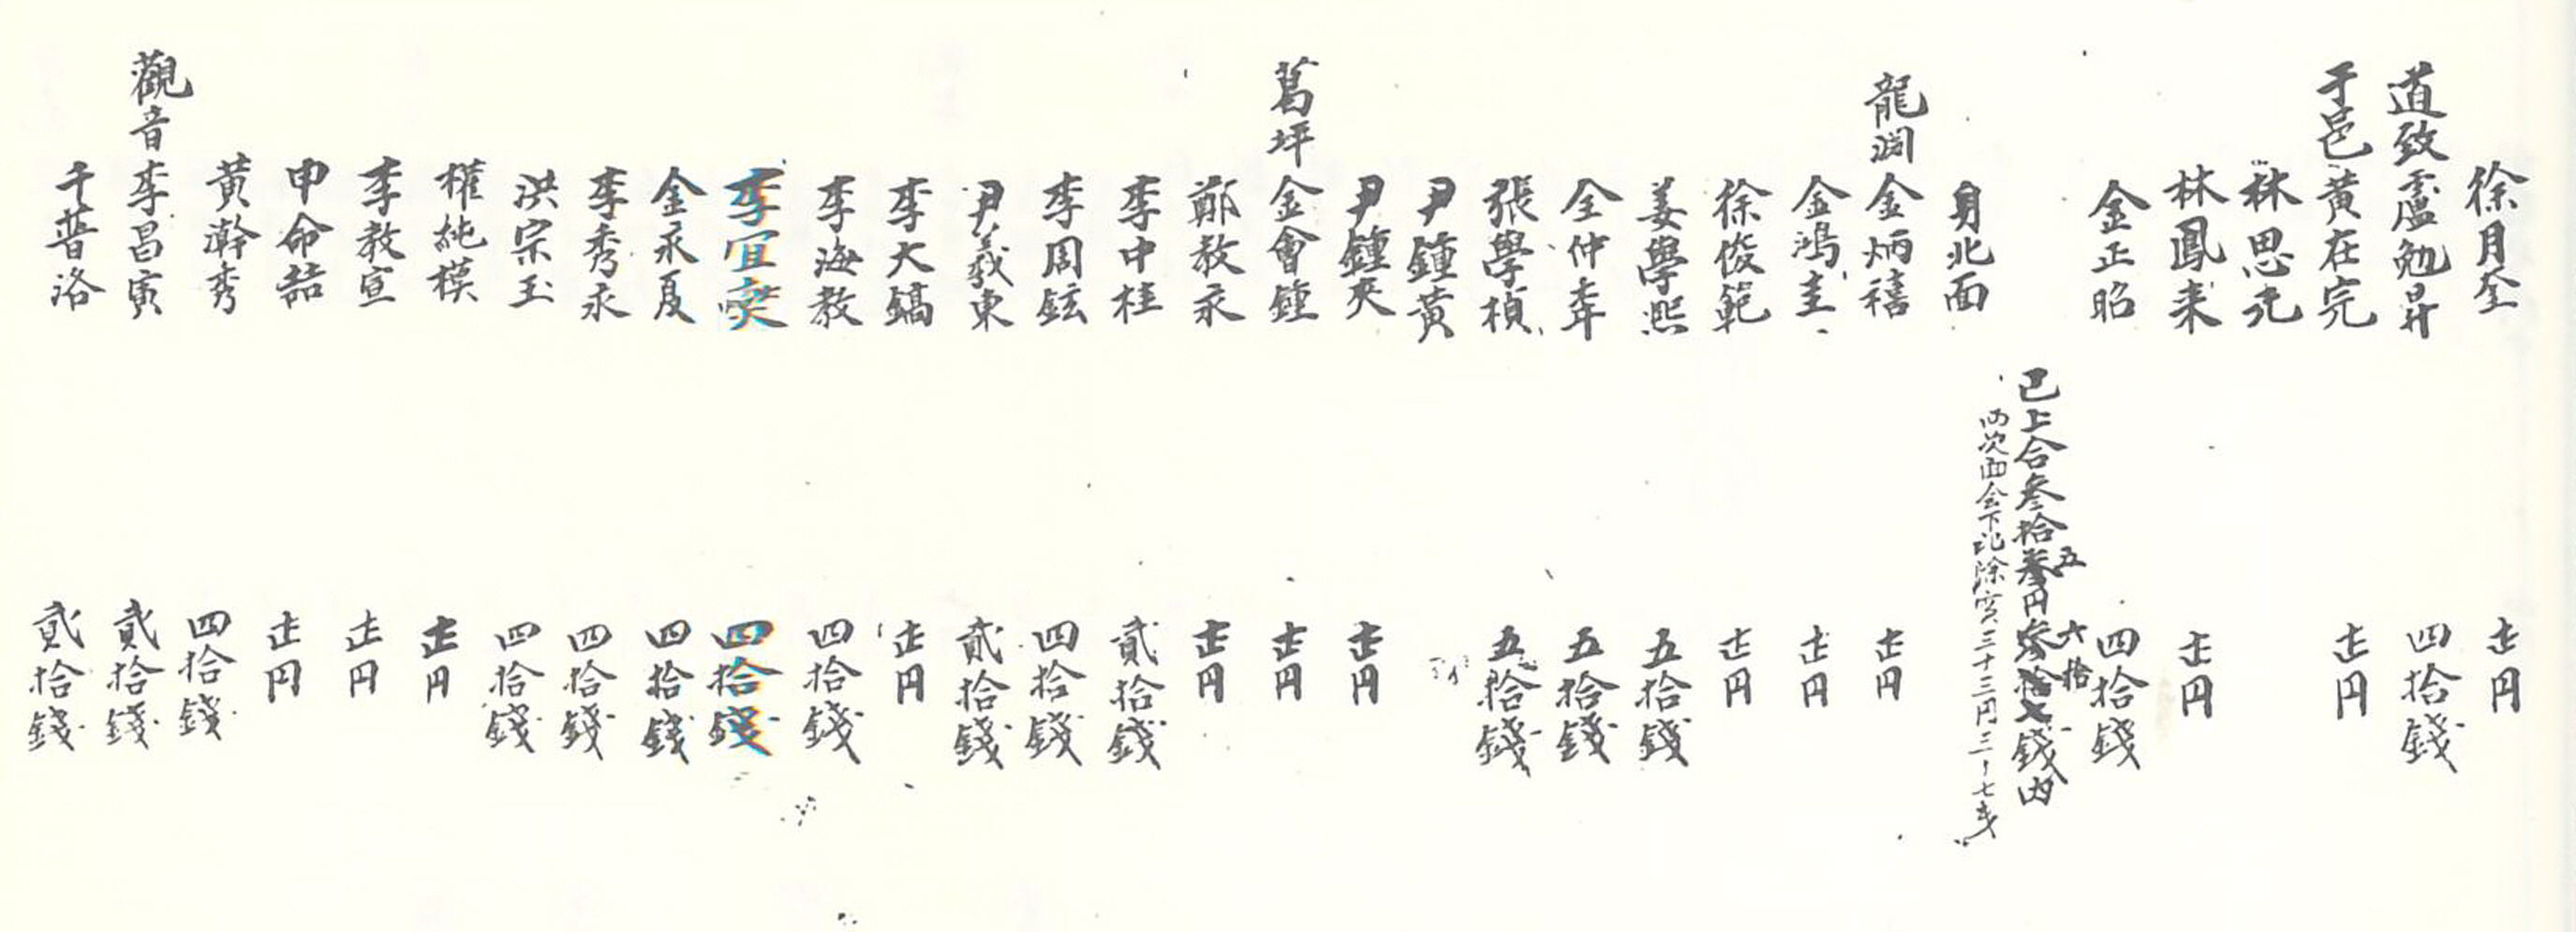 徐月全 壱円
道致 盧勉昇 四拾錢
于邑 黃在完 壱円
林思元
林鳳来 壱円
金正昭 四拾錢
已上合參拾五円六拾錢內
兩次面会下記除實三十三円三十七戔
身北面
龍淵 金炳禧 壱円
金鴻圭 壱円
徐俊範 壱円
姜學熙 五拾錢
全仲年 五拾錢
張學楨 五拾錢
尹鍾黃
尹鍾夾 壱円
葛坪 金會鍾 壱円
鄭敎永 壱円
李中桂 貳拾錢
李周鉉 四拾錢
尹義東 貳拾錢
李大鎬 壱円
李海敎 四拾錢
李宜 四拾錢
金永夏 四拾錢
李秀永 四拾錢
洪宗玉 四拾錢
權純模 壱円
李敎宣 壱円
申命喆 壱円
黃瀚秀 四拾錢
觀音 李昌寅 貳拾錢
千普洛 貳拾錢